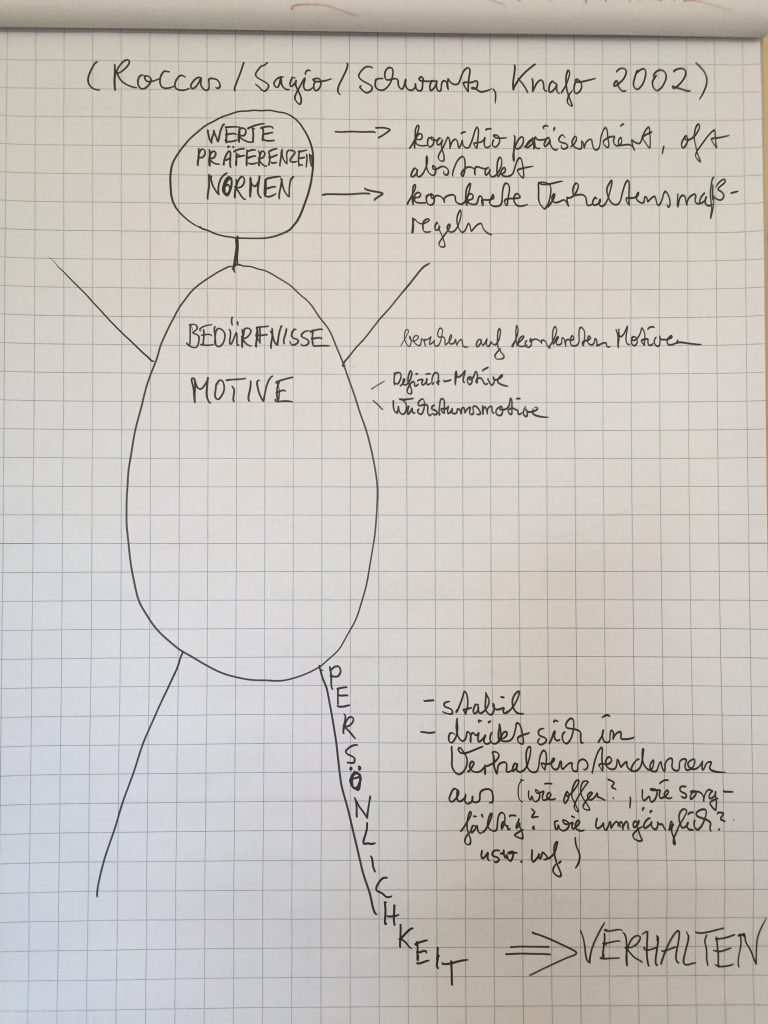 (Roccas/Sagio/Schwartz, Knafo 2002)
WERTE
PRÄFERENZEN
NORMEN
→ kognitiv präsentiert, oft
abstrakt
→ konkrete Verhaltensmaß-
regeln
BEDÜRFNISSE
beruhen auf konkreten Motiven
MOTIVE
Defizit-Motive
Wachstumsmotive
PERSÖNLICHKEIT
- stabil
- drückt sich in
Verhaltenstendenzen
aus (wie offen?, wie sorg-
fältig? wie umgänglich?
usw. usf)
⇒ VERHALTEN